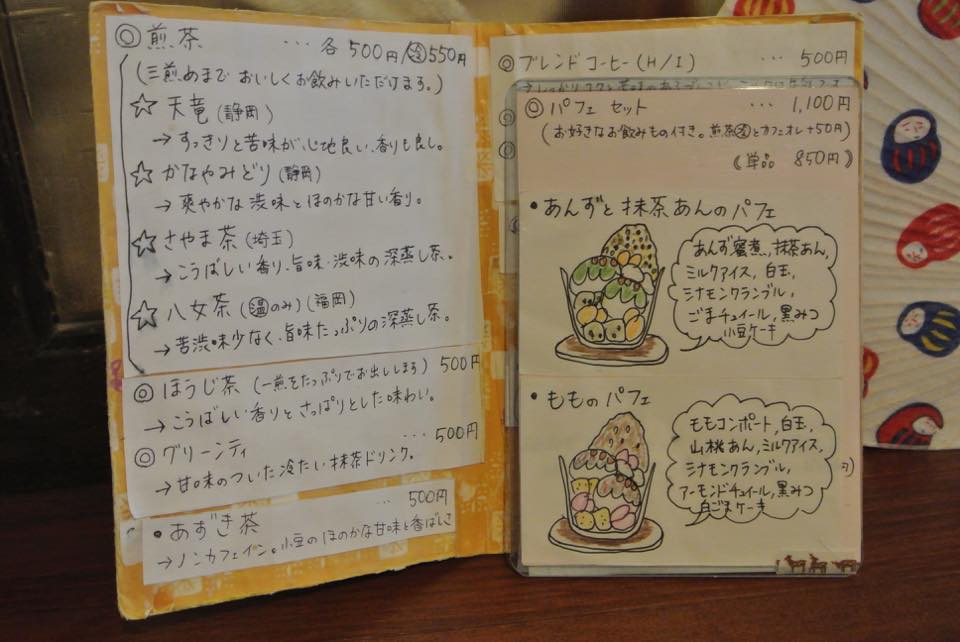 ◎ 煎茶 ・・・各500円/冷550円
(三煎めまでおいしくお飲みいただけます。)
☆ 天竜 (静岡)
→ すっきりと苦味が心地良い、香りも良し。
☆ かなやみどり (静岡)
→ 爽やかな渋味とほのかな甘い香り。
☆ さやま茶 (埼玉)
→ こうばしい香り、旨味・渋味の深蒸し茶。
☆ 八女茶 (温のみ) (福岡)
→ 苦渋味少なく、旨味たっぷりの深蒸し茶。
◎ ほうじ茶 (一煎をたっぷりでお出しします) 500円
→ こうばしい香りとさっぱりとした味わい。
◎ グリーンティ ・・・500円
→ 甘味のついた冷たい抹茶ドリンク。
・あずき茶 ・・・500円
→ ノンカフェイン。小豆のほのかな甘味と香ばしさ
◎ ブレンドコーヒー (H/I) ・・・500円
◎ パフェセット ・・・1,100円
(お好きなお飲みもの付き。煎茶冷とカフェオレ+50円)
《単品 850円》
・あんずと抹茶あんのパフェ
あんず蜜煮, 抹茶あん,
ミルクアイス, 白玉,
シナモンクランブル,
ごまチュイール, 黒みつ
小豆ケーキ
・もものパフェ
ももコンポート, 白玉,
山桃あん, ミルクアイス,
シナモンクランブル,
アーモンドチュイール, 黒みつ
白ごまケーキ